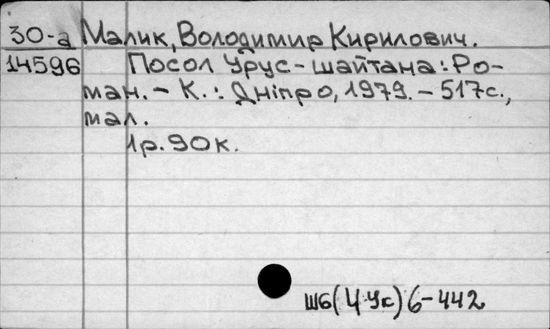 30-а Малик, Володимир Кирилович.
14596 Посол Урус-шайтана: Ро-
ман. - К.: Дніпро, 1979. - 517с.,
мал.
1р. 90к.
Ш6(4Ук)6-442